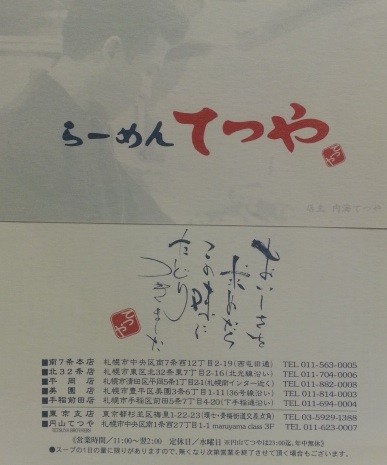 らーめん てつや
てつや
■南7条本店 札幌市中央区南7条西12丁目2-19(西屯田通) TEL 011-563-0005
■北32条店 札幌市東区北32条東7丁目2-16(北光線沿い) TEL 011-704-0006
■平岡店 札幌市清田区平岡5条1丁目2-1(札幌南インター近く) TEL 011-882-0008
■美園店 札幌市豊平区美園3条6丁目1-11(36号線沿い) TEL 011-814-0003
■手稲前田店 札幌市手稲区前田5条7丁目4-20(下手稲通沿い) TEL 011-694-0004
■東京支店 東京都杉並区梅里1-22-23(環七・青梅街道交差点角) TEL 03-5929-1388
■円山てつや 札幌市中央区南1条西27丁目1-1 maruyama class 3F TEL 011-623-0007
TETSUYA BROTHERS
〈営業時間／11:00〜翌2:00 定休日／水曜日 ※円山てつやは23:00迄、年中無休〉
●スープの1日の量に限りがありますので、無くなり次第営業を終了させて頂く場合もございます。